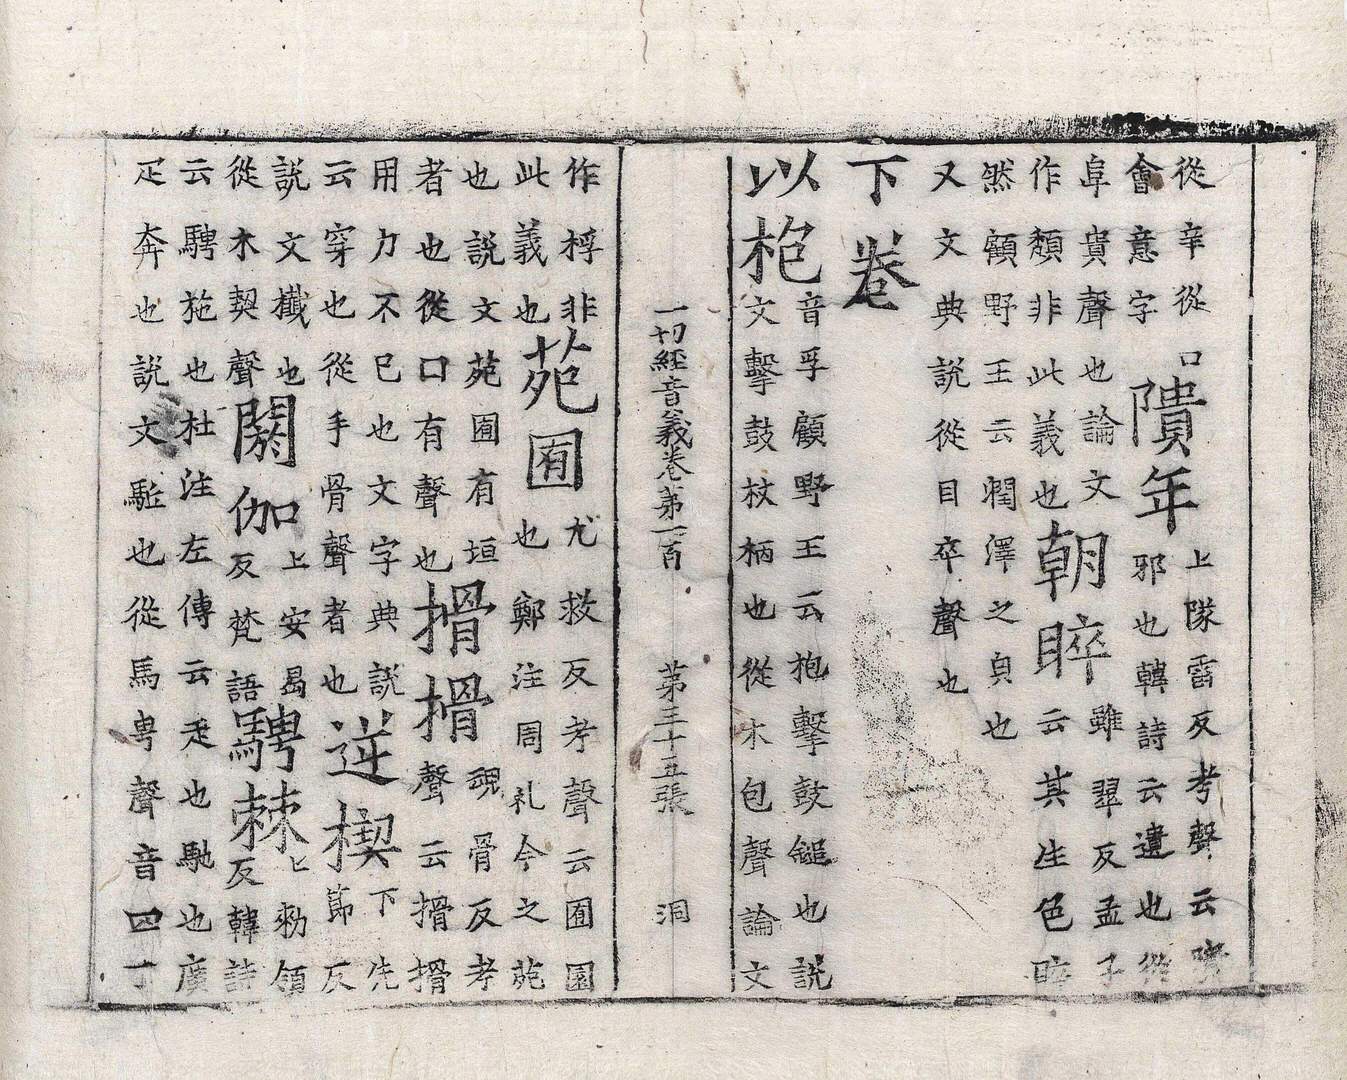 從辛從口隤年上隊雷反考聲云隤
會意字邪也韓詩云遺也從
阜貴聲也論文朝睟雖翠反孟子
作頽非此義也云其生色睟
然顧野王云潤澤之皃也
又文典說從目卒聲也
下卷
以枹音孚顧野王云枹擊鼓鎚也說
文擊鼓杖柄也從木包聲論文
一切經音義卷第一百 第三十五張 洞
作桴非苑囿尤救反考聲云囿園
此義也也鄭注周礼今之苑
也說文苑囿有垣搰搰覨骨反考
者也從口有聲也聲云搰搰
用力不已也文字典說逆楔下先
云穿也從手骨聲者也節反
說文櫼也閼伽上安曷騁棘匕勑領
從木契聲反梵語反韓詩
云騁施也杜注左傳云走也馳也廣
疋奔也說文駈也從馬甹聲音四丁